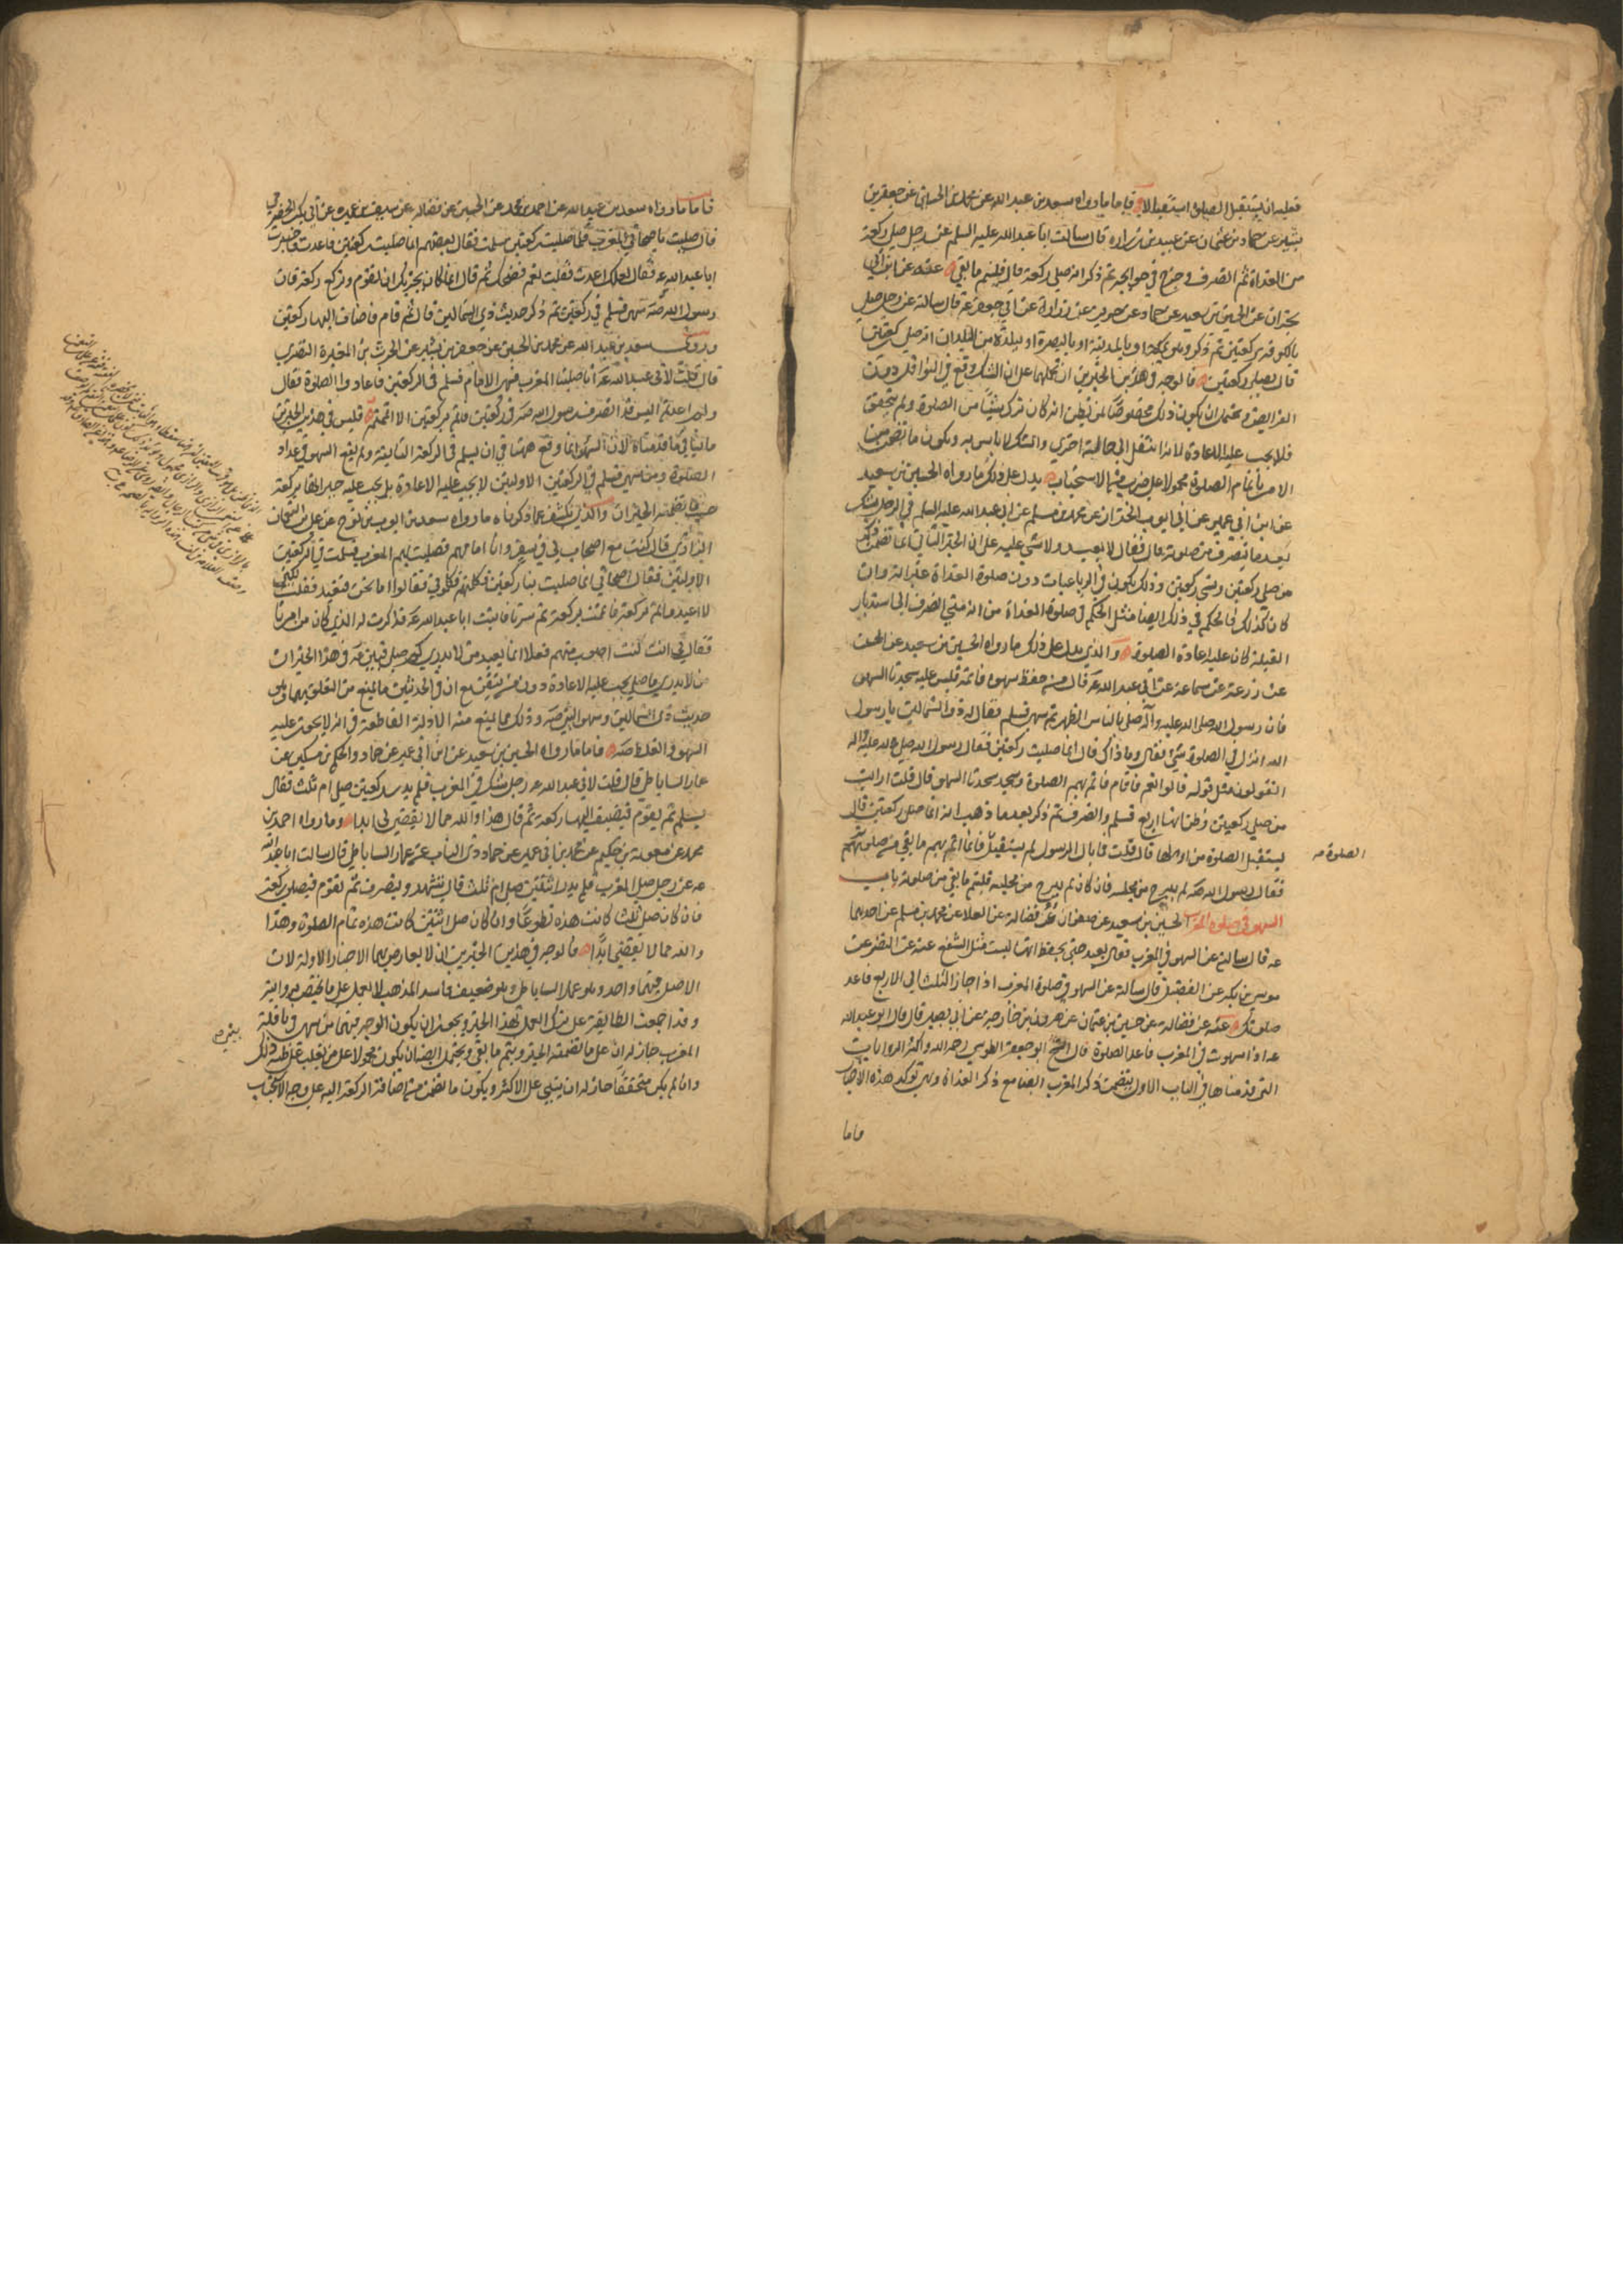 فعليه ان يستقبل الصلوة استقبالا فاما ما رواه سعد بن عبد الله عن محمد بن الحسين عن جعفر بن
بشير عن حماد بن عثمان عن عبيد بن زراره قال سالت ابا عبد الله عليه السلم عن رجل صلى ركعة
من الغداة ثم انصرف وخرج في حوايجه ثم ذكر انه صلى ركعة قال فليتم ما بقي عنه عن ابن ابي
نجران عن الحسين بن سعيد عن حماد عن حريز عن زرارة عن ابي جعفر ع قال سالته عن رجل صلى
بالكوفه ركعتين ثم ذكر وهو بمكة او بالمدينة او بالبصرة او ببلدة من البلدان انه صلى ركعتين
قال يصلي ركعتين فالوجه في هذين الخبرين ان نحملهما على ان الشك وقع في النوافل دون
الفرايض ويحتمل ان يكون ذلك مخصوصا بمن يظن انه كان ترك شيئا من الصلوة ولم يتحقق
فلا يجب عليه الاعادة لانه انتقل الى حالة اخرى والشك لا باس به ويكون ما تضمن من
الامر باتمام الصلوة محمولا على ضرب من الاستحباب يدل على ذلك ما رواه الحسين بن سعيد
عن ابن ابي عمير عن ابي ايوب الخزاز عن محمد بن مسلم عن ابي عبد الله عليه السلم في الرجل يشك
بعد ما ينصرف من صلوته قال فقال لا يعيد ولا شي عليه على ان الخبر الثاني انما تضمن ذكر
من صلى ركعتين ونسي ركعتين وذلك يكون في الرباعيات دون صلوة الغداة غير انه وان
كان كذلك فالحكم في ذلك ايضا مثل الحكم في صلوة الغداة من انه متى انصرف الى استدبار
القبلة كان عليه اعادة الصلوة والذي يدل على ذلك ما رواه الحسين بن سعيد عن الحسن
عن زرعة عن سماعة عن ابي عبد الله ع قال من حفظ سهوه فاتمه فليس عليه سجدتا السهو
فان رسول الله صلى الله عليه وآله صلى بالناس الظهر ثم سهى فسلم فقال له ذو الشمالين يا رسول
الله انزل في الصلوة شي فقال وما ذاك قال انما صليت ركعتين فقال رسول الله صلى الله عليه واله
اتقولون مثل قوله قالوا نعم فقام فاتم بهم الصلوة وسجد سجدتا السهو قال قلت ارايت
من صلى ركعتين وظن انهما اربع فسلم وانصرف ثم ذكر بعد ما ذهب انه انما صلى ركعتين قال
يستقبل الصلوة من اولها قال قلت فما بال الرسول لم يستقبل وانما اتم بهم ما بقي من صلوتهم
الصلوة
فقال رسول الله ص لم يبرح من مجلسه فان كان لم يبرح من مجلسه فليتم ما بقي من صلوته باب
السهو في صلوة المغرب الحسين بن سعيد عن صفوان عن فضالة عن العلا عن محمد بن مسلم عن احدهما
ع قال سالته عن السهو في المغرب فقال يعيد حتى يحفظ انها ليست مثل الشفع عنه عن النضر عن
موسى بن بكر عن الفضيل قال سالته عن السهو في صلوة المغرب اذا جاز الثلث الى الاربع فاعد
صلوتك عنه عن فضالة عن حسين بن عثمان عن هرون بن خارجة عن ابي بصير قال قال ابو عبد الله
ع اذا سهوت في المغرب فاعد الصلوة قال الشيخ ابو جعفر الطوسي رحمه الله واكثر الروايات
التي قدمناها في الباب الاول تتضمن ذكر المغرب ايضا مع ذكر الغداة وهي توكد هذه الاخبار
فاما
فاما ما رواه سعد بن عبد الله عن احمد بن محمد عن الحسين عن فضاله عن سيف بن عميره عن ابي بكر الحضرمي
قال صليت باصحابي المغرب فلما صليت ركعتين سلمت فقال بعضهم انما صليت ركعتين فاعدت فاخبرت
ابا عبد الله ع فقال لعلك اعدت فقلت نعم فضحك ثم قال انما كان يجزيك ان تقوم وتركع ركعة فان
رسول الله ص سهى فسلم في ركعتين ثم ذكر حديث ذي الشمالين قال ثم قام فاضاف اليها ركعتين
وروى سعد بن عبد الله عن محمد بن الحسين عن جعفر بن بشير عن الحرث بن المغيرة النصري
قال قلت لابي عبد الله ع انا صلينا المغرب فسهى الامام فسلم في الركعتين فاعادوا الصلوة فقال
ولم اعدتم اليس قد انصرف رسول الله ص في ركعتين فاتم بركعتين الا اتممتم فليس في هذين الخبرين
ما ينافي ما قدمناه لان السهو انما وقع ههنا في ان يسلم في الركعة الثانية ولم يقع السهو في اعداد
الصلوة ومن سهى فسلم في الركعتين الاولتين لا يجب عليه الاعادة بل يجب عليه جبرانها بركعة
حسب ما تضمنه الخبران والذي يكشف عما ذكرناه ما رواه سعد بن ايوب بن نوح عن علي بن النعمان
الرازي قال كنت مع اصحاب لي في سفر وانا امامهم فصليت بهم المغرب فسلمت في الركعتين
الاولتين فقال اصحابي انما صليت بنا ركعتين فكلمتهم فكلموني فقالوا اما نحن فنعيد فقلت لكني
لا اعيد واتم بركعة فاتممت بركعة ثم سرنا فاتيت ابا عبد الله ع فذكرت له الذي كان من امرنا
فقال لي انت كنت اصوب منهم فعلا انما يعيد من لا يدري كم صلى فبين ع في هذا الخبر ان
من لا يدري ما صلى يجب عليه الاعادة دون من يتيقن مع ان في الحديثين ما يمنع من التعلق بهما وهو
حديث ذي الشمالين وسهو النبي ص وذلك مما يمنع منه الادلة القاطعة في انه لا يجوز عليه
السهو والغلط ص فاما ما رواه الحسين بن سعيد عن ابن ابي عمير عن حماد والحكم بن مسكين عن
عمار الساباطي قال قلت لابي عبد الله ع رجل شك في المغرب فلم يدر ركعتين صلى ام ثلث فقال
يسلم ثم يقوم فيضيف اليها ركعة ثم قال هذا والله مما لا يقضى لي ابدا وما رواه احمد بن
محمد عن معوية بن حكيم عن محمد بن ابي عمير عن حماد ذي الناب عن عمار الساباطي قال سالت ابا عبد الله
ع عن رجل صلى المغرب فلم يدر اثنتين صلى ام ثلث قال يتشهد وينصرف ثم يقوم فيصلي ركعة
فان كان صلى ثلثا كانت هذه تطوعا وان كان صلى اثنتين كانت هذه تمام الصلوة وهذا
والله مما لا يقضى ابدا فالوجه في هذين الخبرين ان لا يعارض بهما الاخبار الاولة لان
الاصل فيهما واحد وهو عمار الساباطي وهو ضعيف فاسد المذهب لا يعمل على ما يختص بروايته
وقد اجمعت الطايفة على ترك العمل بهذا الخبر ويجوز ان يكون الوجه فيهما من سهى في نافلة
المغرب جاز له ان على ما تضمنه الخبر ويتم ما بقي ويحتمل ايضا ان يكون محمولا على من يغلب على ظنه ذلك
يبني
وان لم يكن متحققا جاز له ان يبني على الاكثر ويكون ما تضمن من اضافة الركعة اليه على وجه الاستحباب